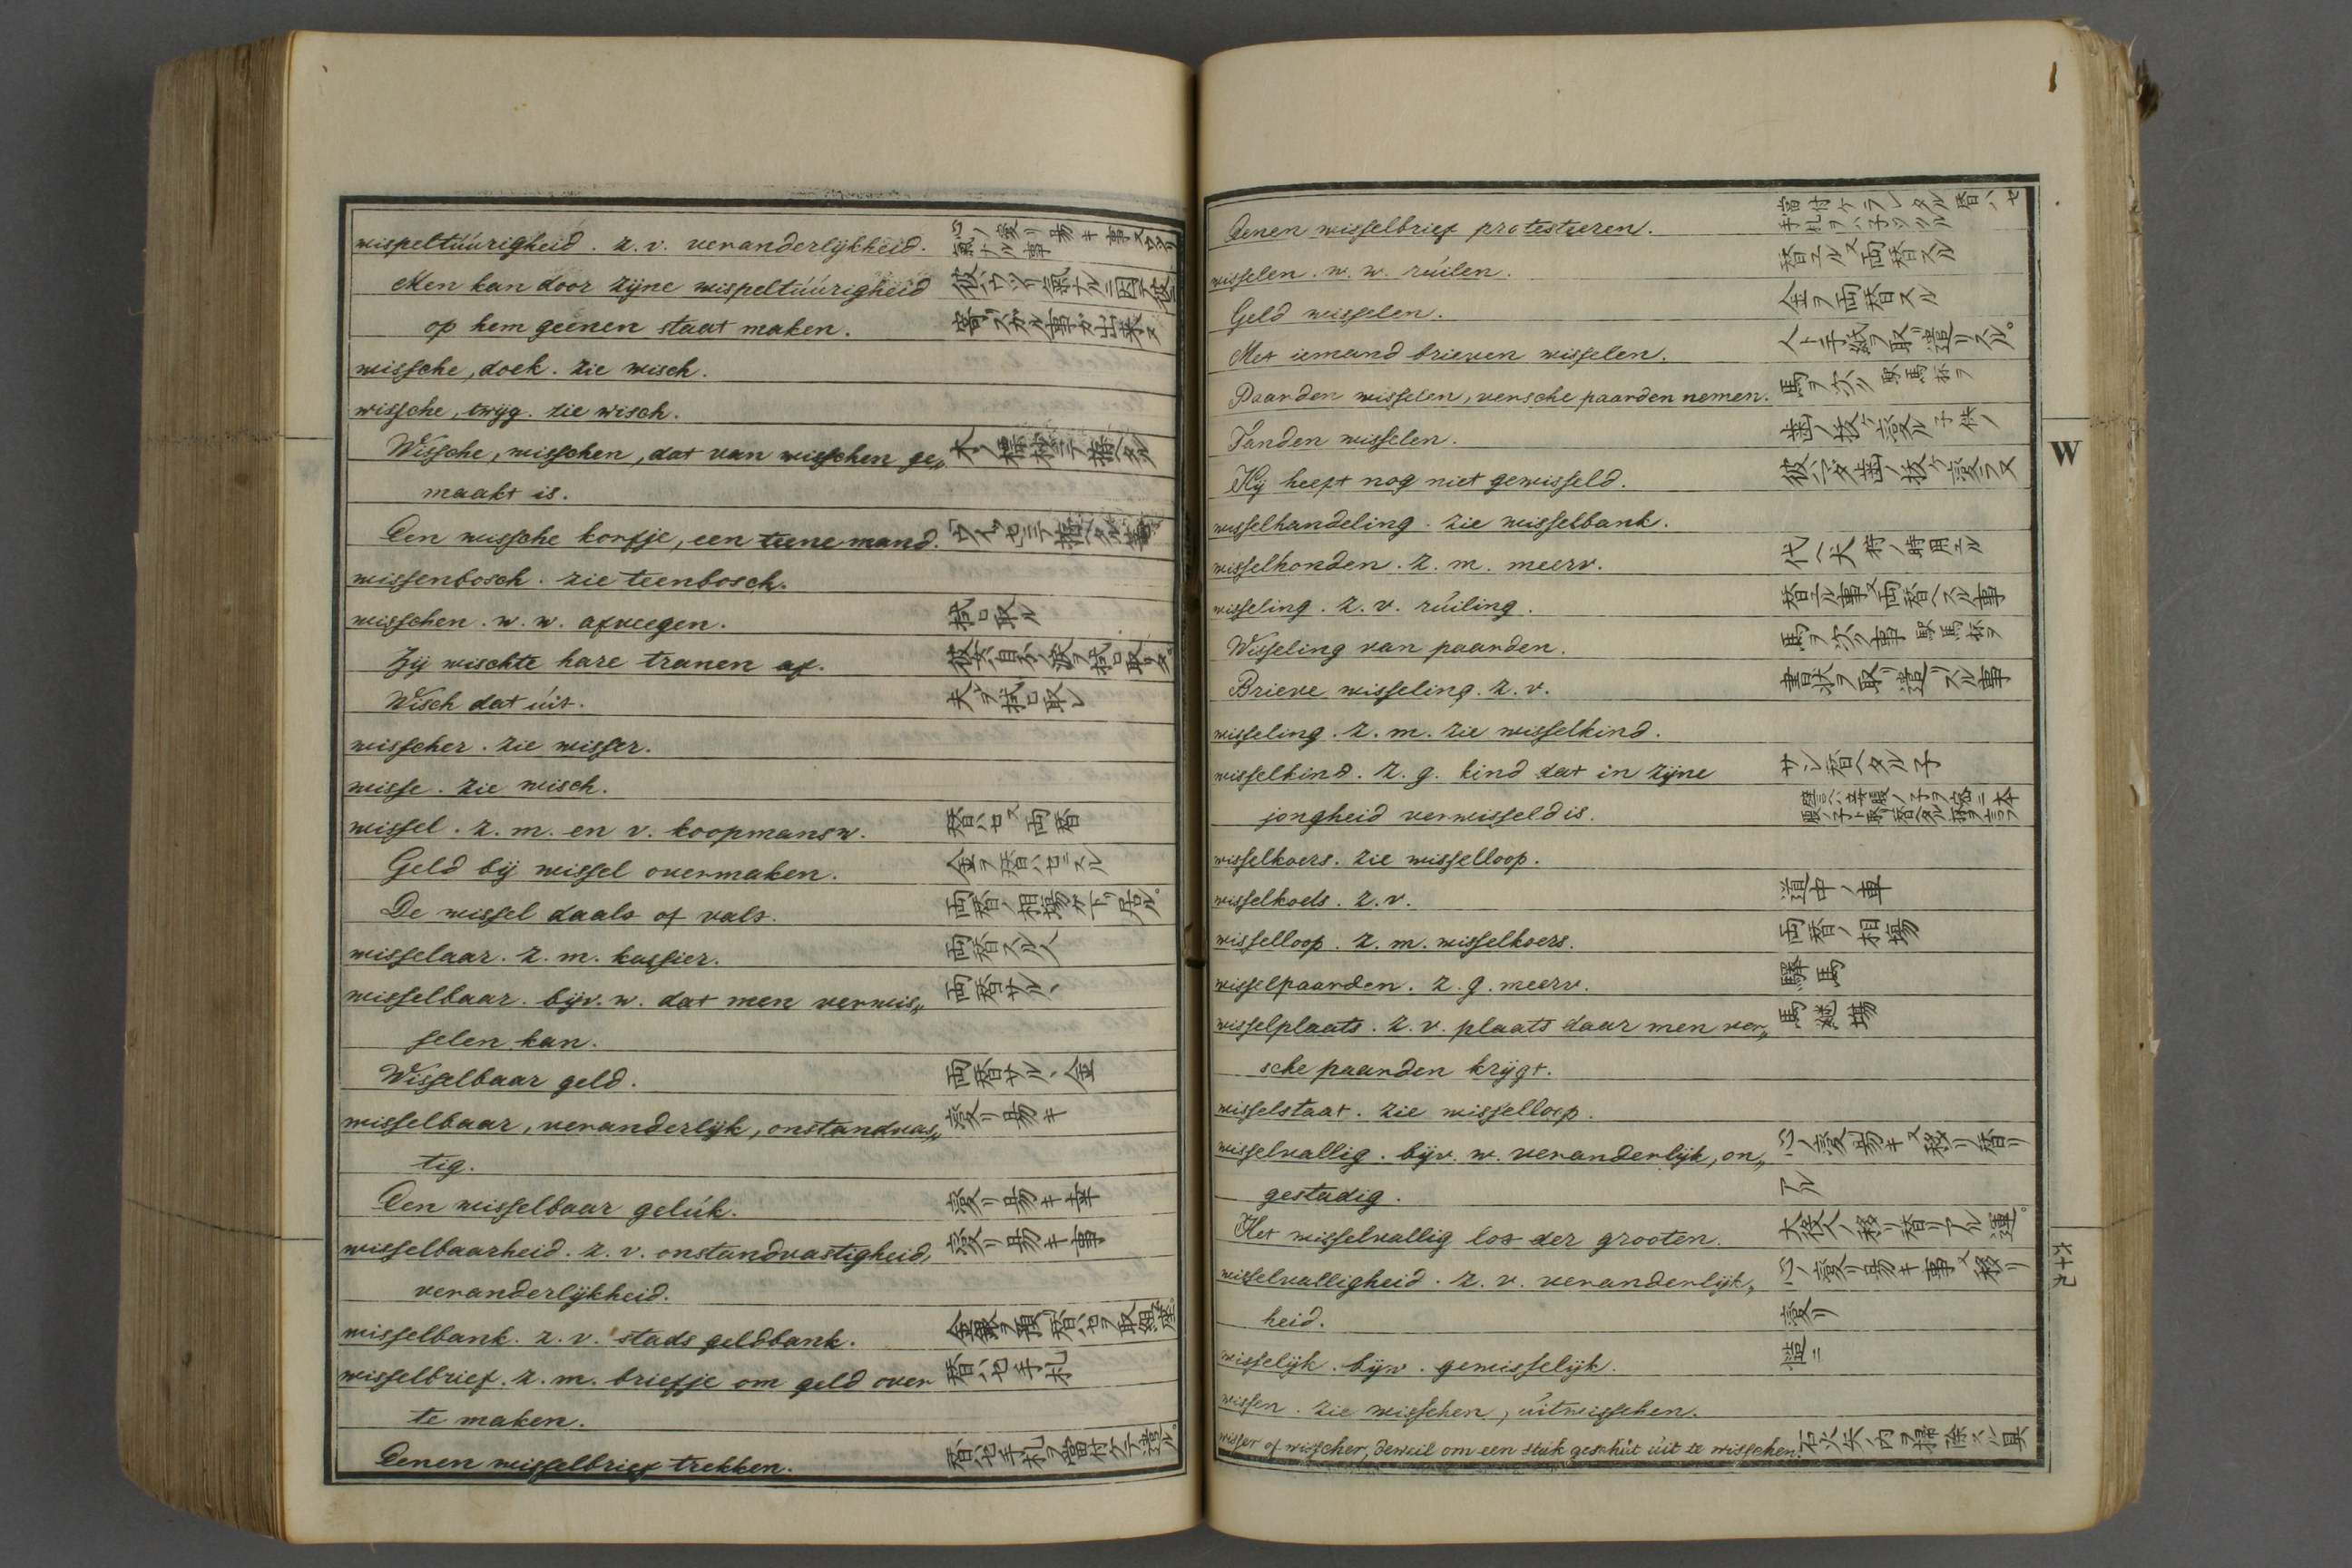 wispeltúúrigheid. z.v. veranderlijkheid. 心ノ変リ易キ事又ウワツリ氣ナル事
Men kan door zijne wispeltúúrigheid
op hem geenen staat maken.
wissche, doek. zie wisch.
wissche, twijg. zie wisch.
Wissche, wisschen, dat van wisschen ge„
maakt is.
Een wissche korfje, een teene mand.
wissenbosch. zie teenbosch.
wisschen. w. w. afveegen. 拭ヒ取ル
Zij wischte hare tranen af.
Wisch dat úit. 夫ヲ拭ヒ取レ
wisscher. zie wisser.
wisse. zie wisch.
wissel. z. m. en v. koopmansw. 替ハセ又両替
Geld bij wissel overmaken. 金ヲ替ハセニスル
De wissel daalt of valt. 両替ノ相場ガ下リ居ル。
wisselaar. z. m. kassier. 両替スル人
wisselbaar. bijv. w. dat men verwis„ 両替サルヽ
selen kan.
Wisselbaar geld. 両替サルヽ金
wisselbaar, veranderlijk, onstandvas„ 変リ易キ
tig.
Een wisselbaar gelúk. 変リ易キ幸
wisselbaarheid. z. v. onstandvastigheid, 変リ易キ事
veranderlijkheid.
wisselbank. z. v. stads geldbank.
wisselbrief. z. m. briefje om geld over 替ハセ手札
te maken.
Eenen wisselbrief trekken.
Eenen wisselbrief protesteeren.
wisselen. w. w. rúilen. 替エル又両替スル
Geld wisselen. 金ヲ両替スル
Met iemand brieven wisselen. 人ト手紙ヲ取リ遣リスル。
Paarden wisselen, versche paarden nemen. 馬ヲ次グ 駅馬杯ヲ
Tanden wisselen. 歯ノ抜ケ変ル 子供ノ
Hij heeft nog niet gewisseld. 彼ハマダ歯ノ抜ケ変ラヌ
wisselhandeling. zie wisselbank.
wisselhonden. z. m. meerv. 代ヘ犬 狩ノ時用ユル
wisseling. z. v. rúiling. 替エル事又両替ヘスル事
Wisseling van paarden. 馬ヲ次グ事 駅馬杯ヲ
Brieve wisseling. z. v. 書状ヲ取リ遣リスル事
wisseling. z. m. zie wisselkind.
wisselkind. z. g. kind dat in zijne サシ替ヘタル子
jongheid verwisseld is.
wisselkoers. zie wisselloop.
wisselkoets. z. v. 道中ノ車
wisselloop. z. m. wisselkoers. 両替ノ相場
wisselpaarden. z. g. meerv. 驛馬
wisselplaats. z. v. plaats daar men ver„ 馬継場
sche paarden krijgt.
wisselstaat. zie wisselloop.
wisselvallig. bijv. w. veranderlijk, on„ 心ノ変易キ又移リ替リ
gestadig. アル
Het wisselvallig lot der grooten. 大役人ノ移リ替リアル運。
wisselvalligheid. z. v. veranderlijk„ 心ノ変リ易キ事又移リ
heid. 変リ
wisselijk. bijw. gewisselijk. 慥ニ
wissen. zie wisschen, úitwisschen.
wisser of wisscher, dweil om een stúk geschút úit te wisschen. 石火矢ノ内ヲ掃除スル具
W